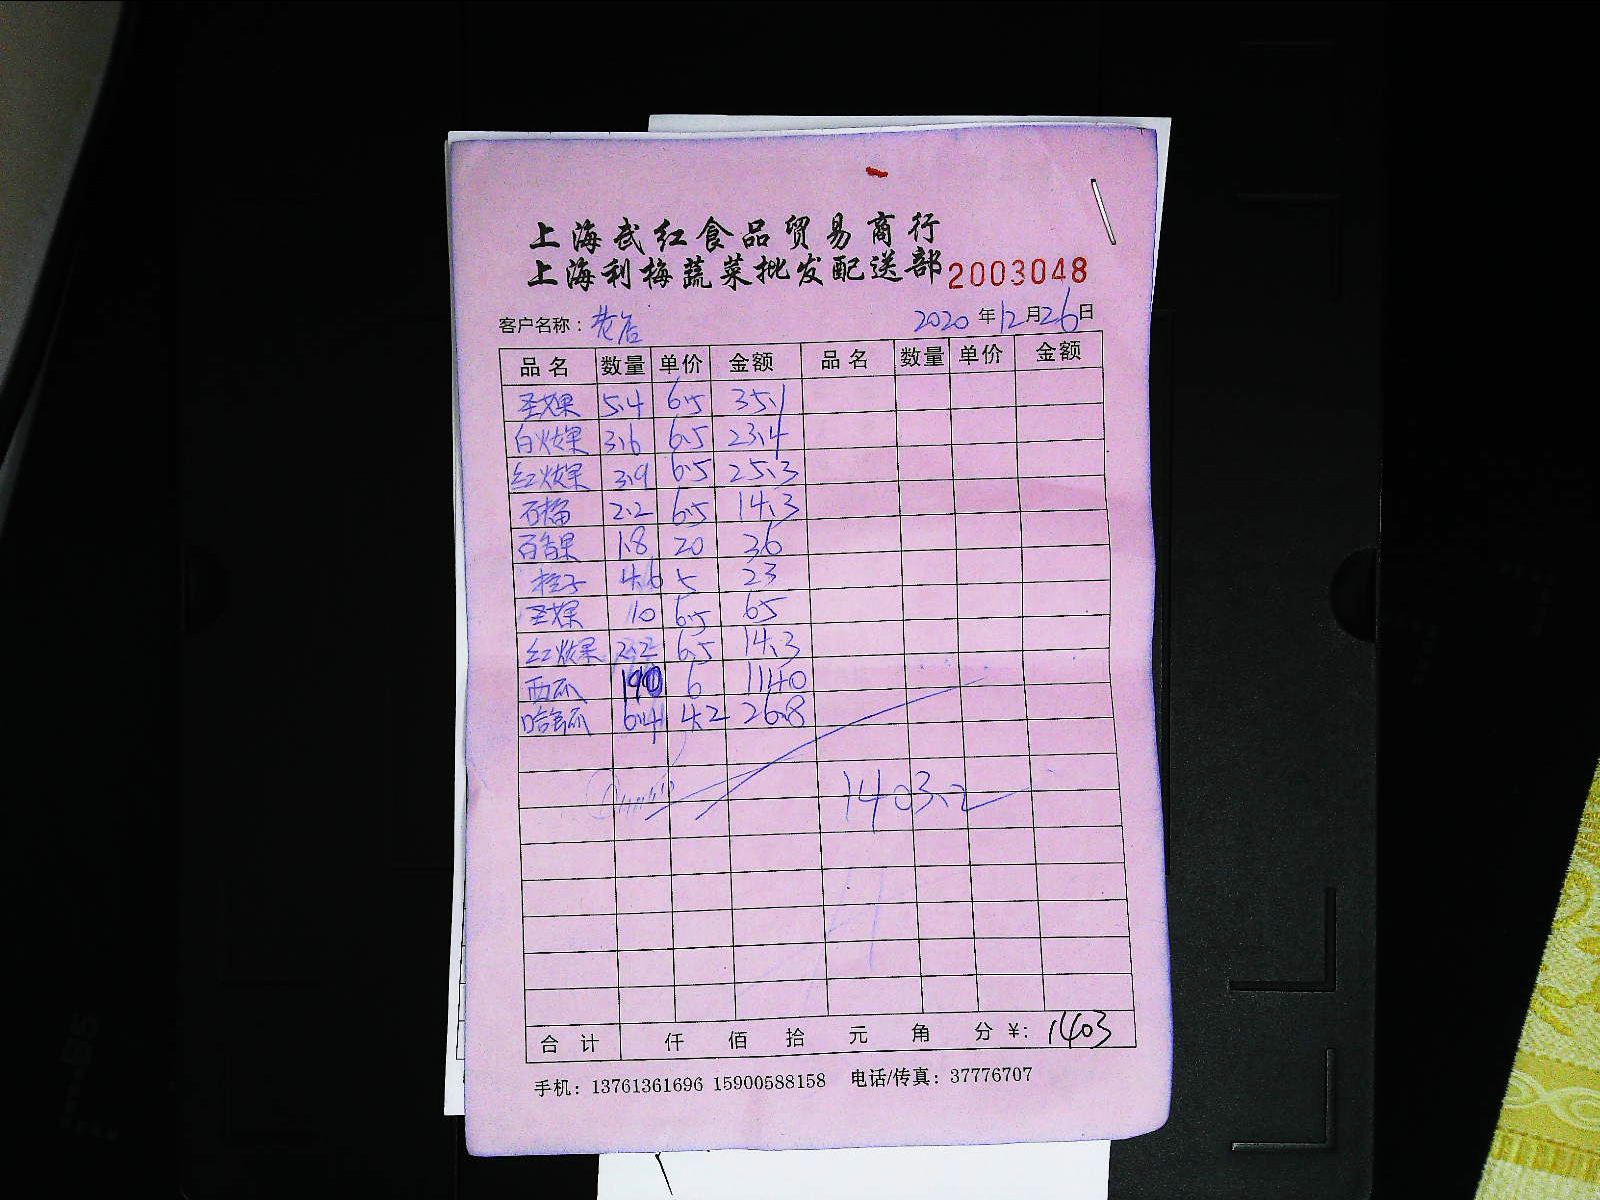 上海武红食品贸易商行
上海利梅蔬菜批发配送部 2003048
客户名称： 2020年12月26日
品名 数量 单价 金额 品名 数量 单价 金额
圣女果 5.4 6.5 35.1
白火龙果 3.6 6.5 23.4
红火龙果 3.9 6.5 25.3
石榴 2.2 6.5 14.3
百香果 1.8 20 36
桔子 4.6 5 23
圣女果 10 6.5 65
红火龙果 2.2 6.5 14.3
西瓜 190 6 1140
哈密瓜 6.4 4.2 26.8
1403.2
合计 仟 佰 拾 元 角 分 ¥: 1403
手机：13761361696 15900588158 电话/传真：37776707